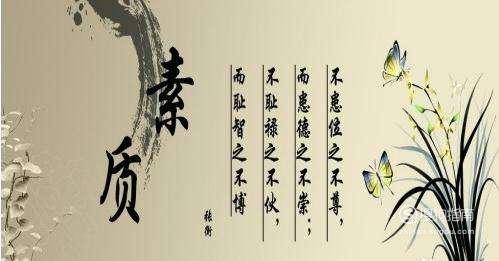 素质
不患位之不尊,
而患德之不崇;
不耻禄之不伙,
而耻智之不博
张衡